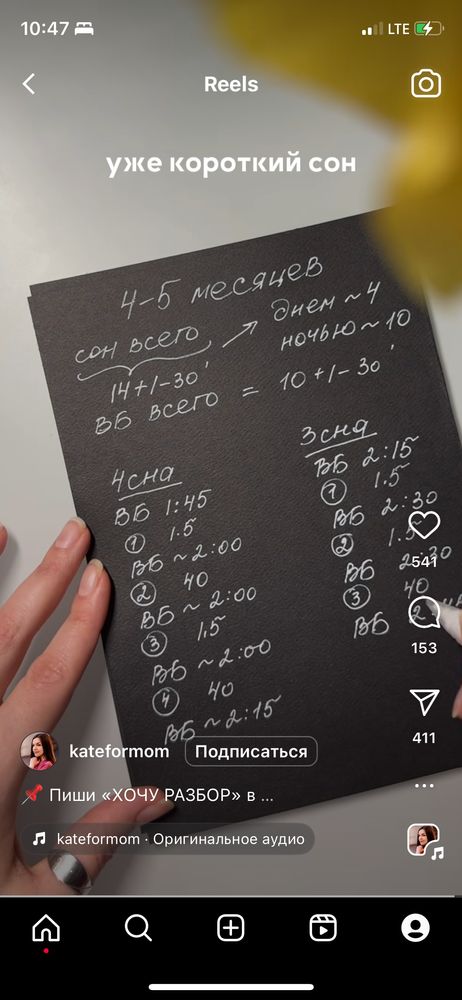 10:47
LTE
Reels
уже короткий сон
4-5 месяцев
сон всего
днем ~ 4
ночью ~ 10
14 +/- 30'
ВБ всего = 10 +/- 30'
4 сна
ВБ 1:45
1 1.5
ВБ ~ 2:00
2 40
ВБ ~ 2:00
3 1,5
ВБ ~ 2:00
4 40
ВБ ~ 2:15
3 сна
ВБ 2:15
1 1.5
ВБ 2:30
2 1.5
ВБ 2:30
3 40
ВБ
541
153
411
kateformom
Подписаться
📌 Пиши «ХОЧУ РАЗБОР» в ...
kateformom · Оригинальное аудио